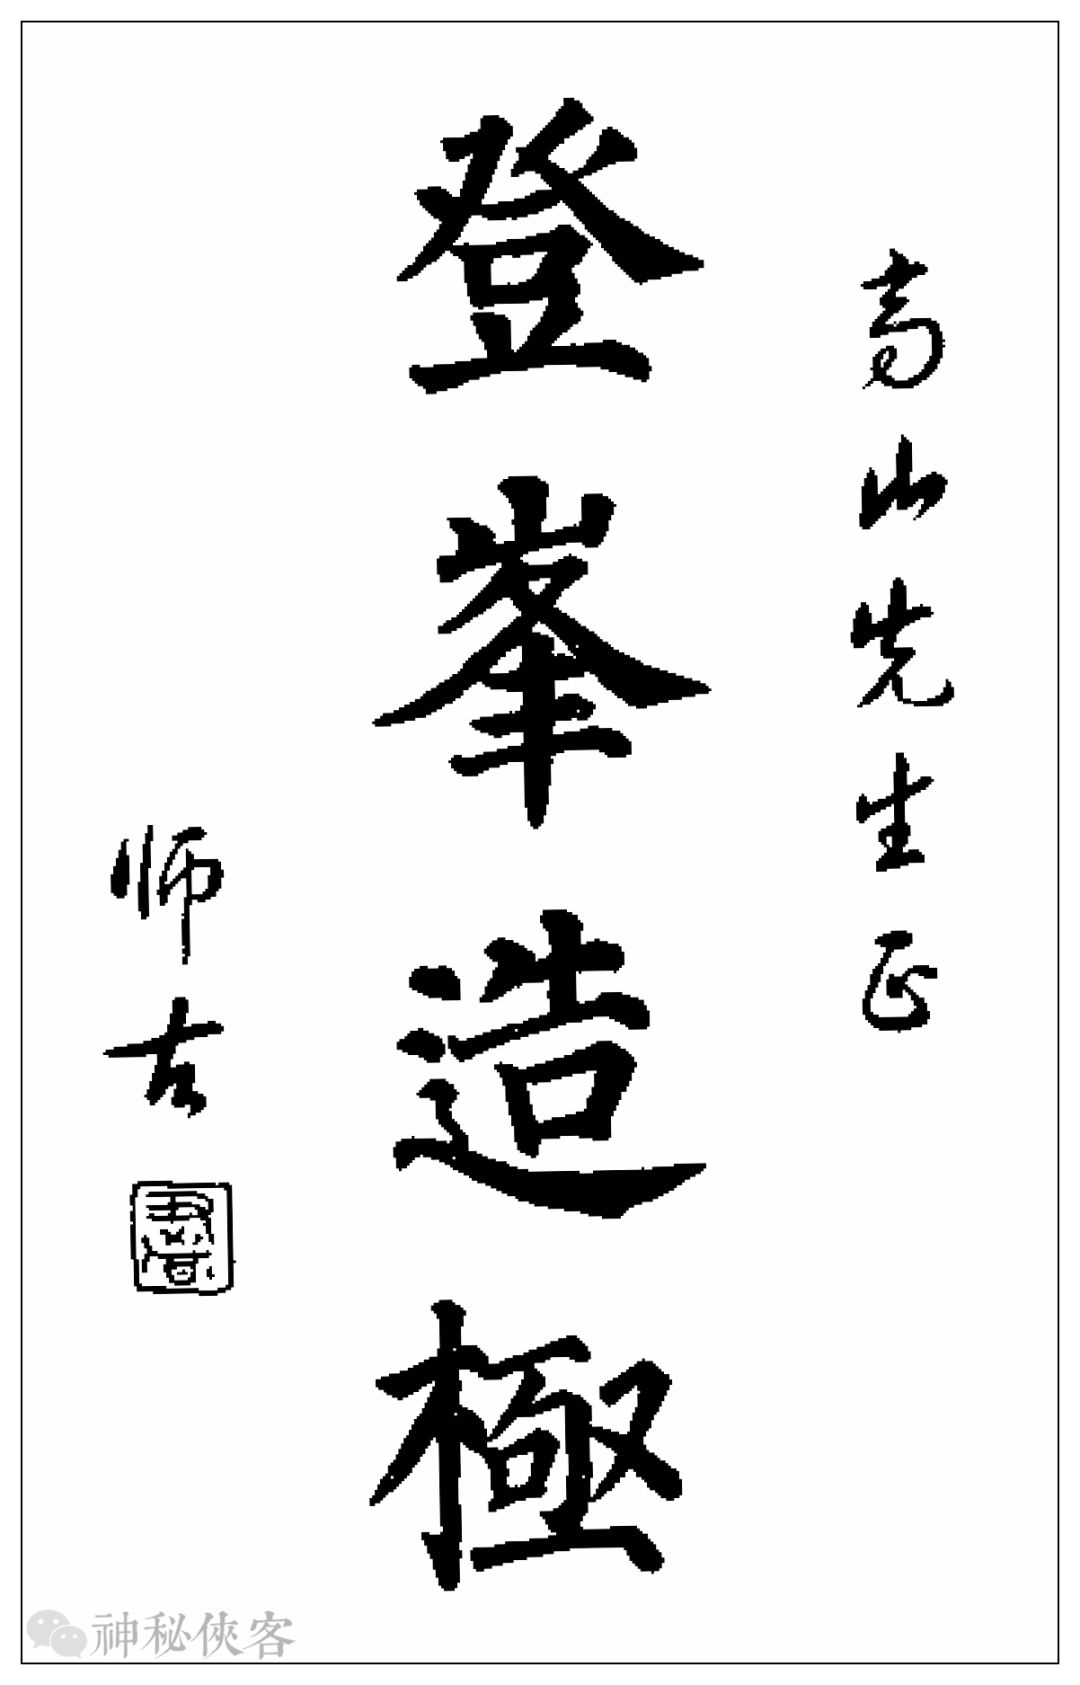 高山先生正
登峯造極
师古
神秘俠客